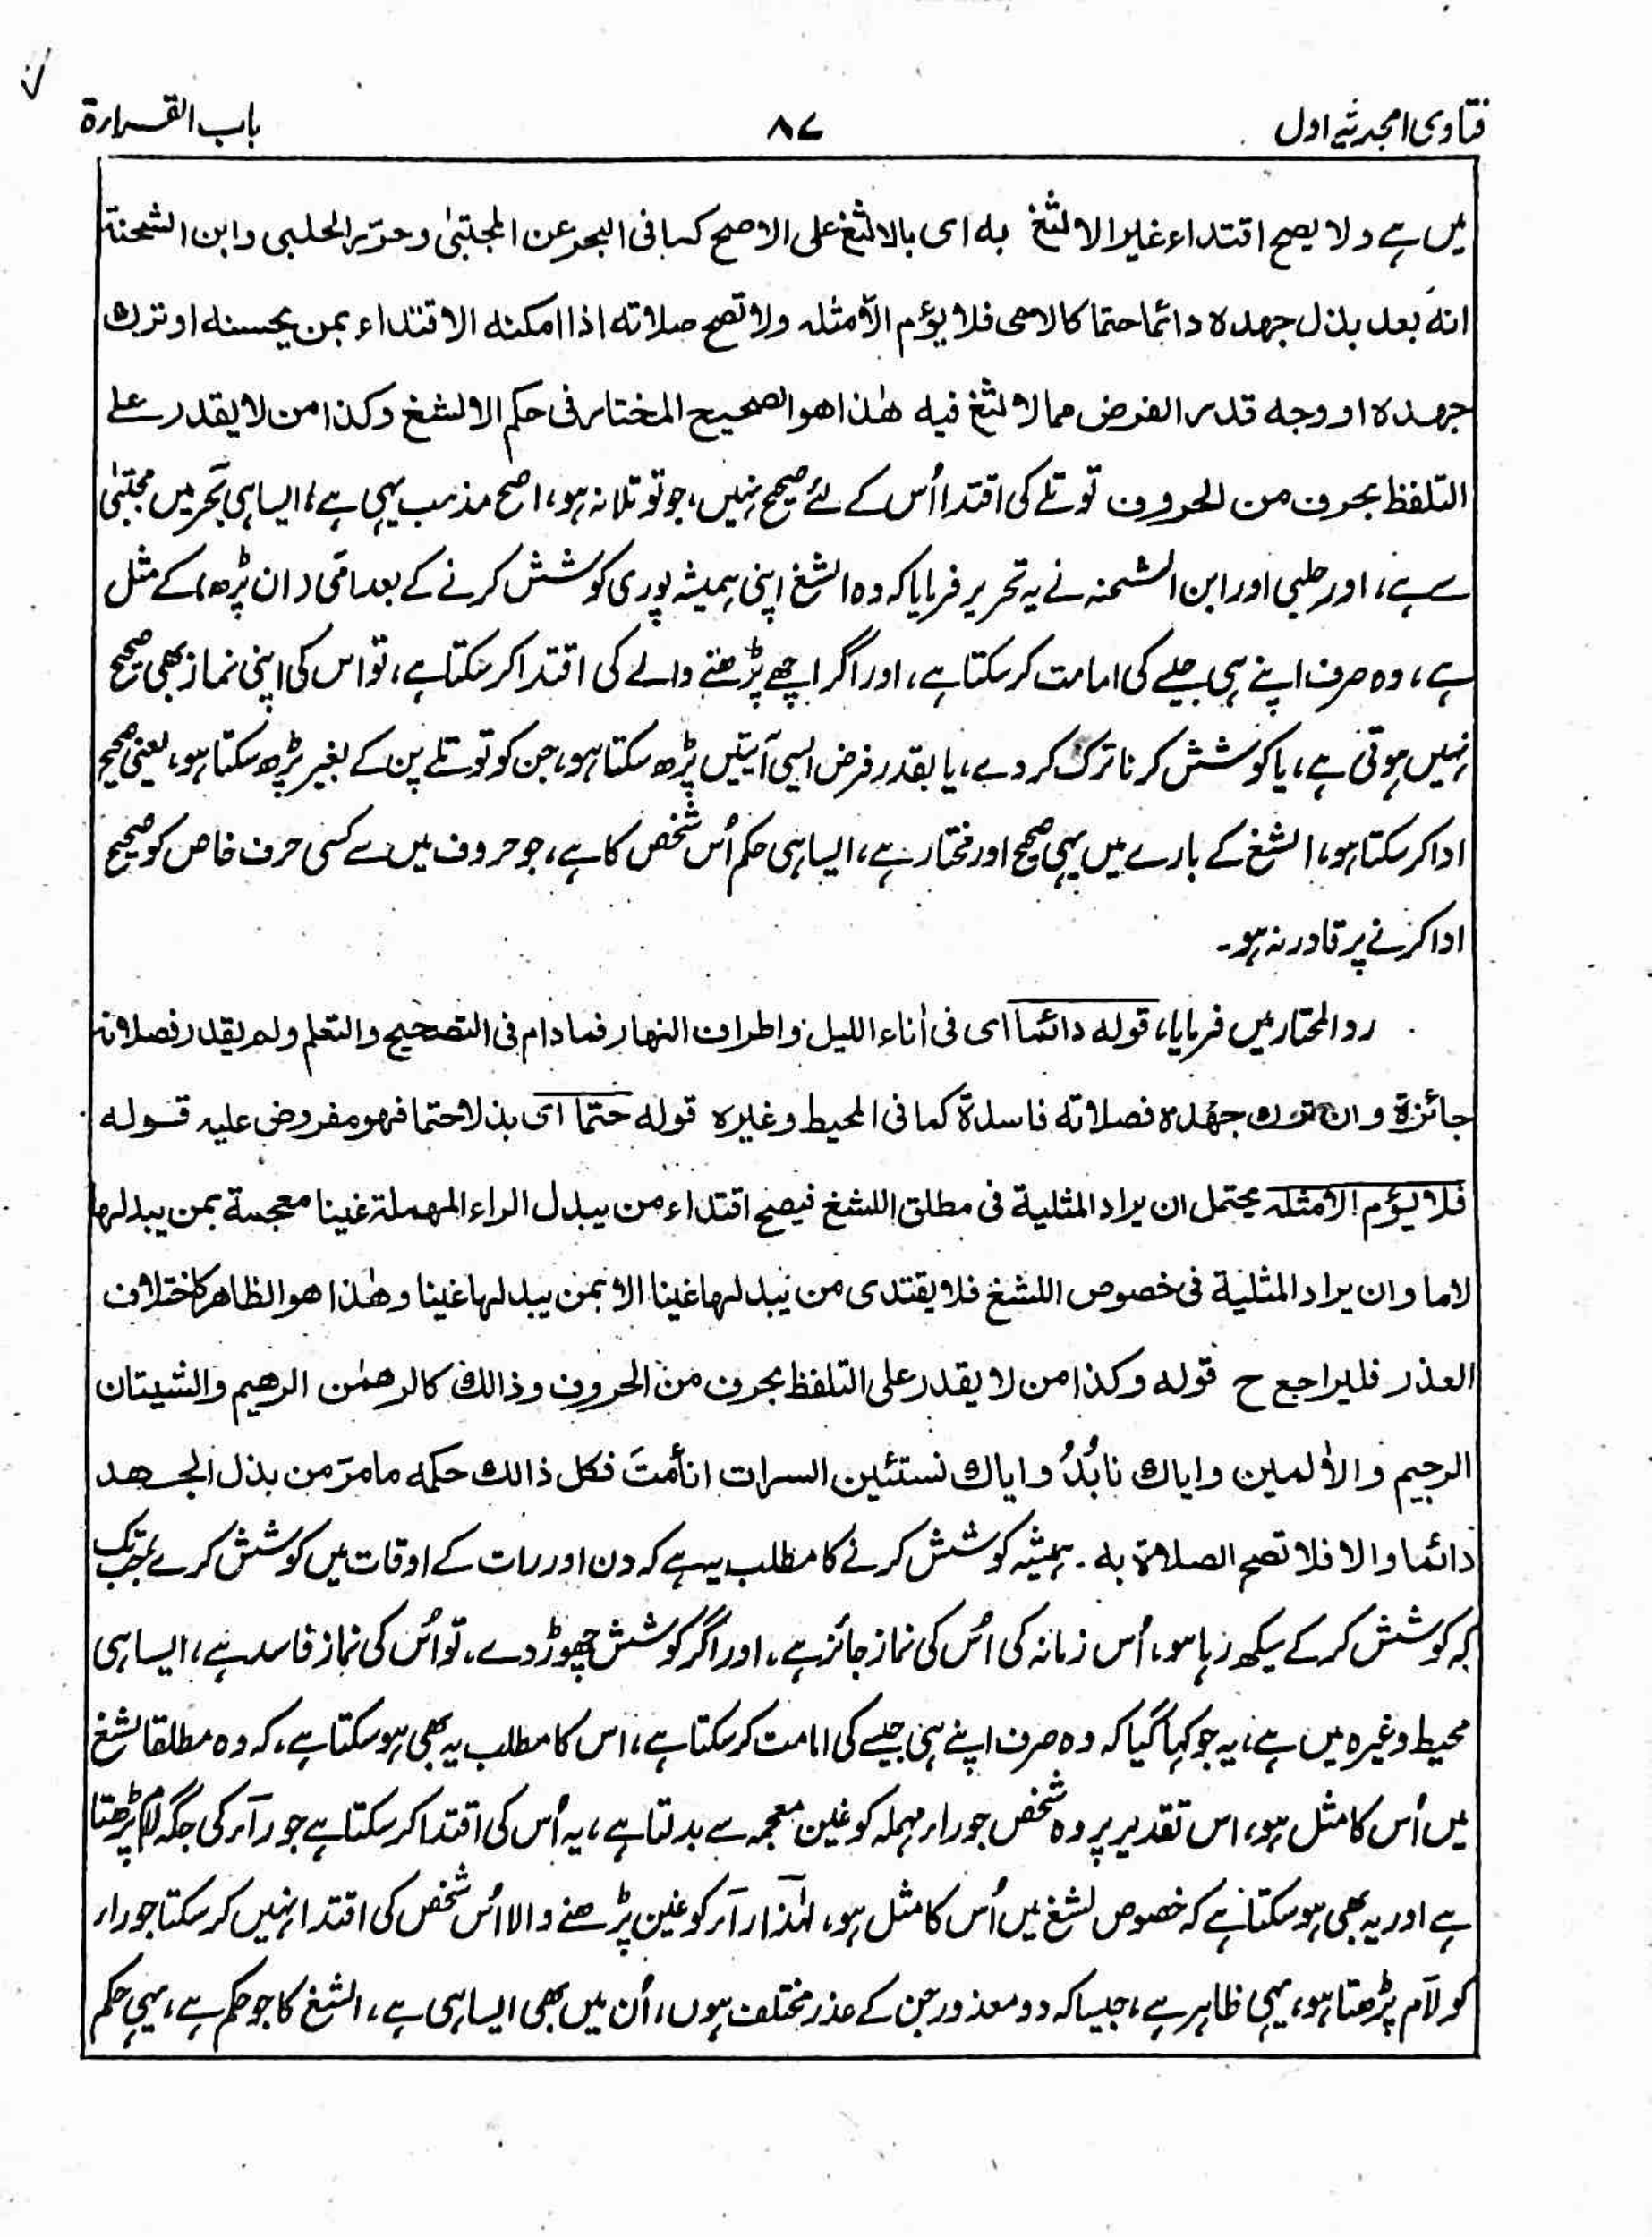 فتاوی امجدیہ اول
۸۷
باب القراءۃ
میں ہے ولا یصح اقتداء غیر الالثغ بہ ای بالالثغ علی الاصح کما فی البحر عن المجتبیٰ وحرّر الحلبی وابن الشحنة
انہ بعد بذل جہدہ دائما حتما کالامی فلا یؤم الا مثلہ ولا تصح صلاتہ اذا امکنہ الاقتداء بمن یحسنہ او ترک
جہدہ او وجد قدر الفرض مما لا لثغ فیہ ھٰذا ھو الصحیح المختار فی حکم الالثغ وکذا من لا یقدر علی
التلفظ بحرف من الحروف توتلے کی اقتدا اُس کے لئے صحیح نہیں، جو توتلا نہ ہو، اصح مذہب یہی ہے، ایسا ہی بحر میں مجتبیٰ
سے ہے، اور حلبی اور ابن الشحنہ نے یہ تحریر فرمایا کہ وہ الثغ اپنی ہمیشہ پوری کوشش کرنے کے بعد امّی (ان پڑھ) کے مثل
ہے، وہ صرف اپنے ہی جیسے کی امامت کر سکتا ہے، اور اگر اچھے پڑھنے والے کی اقتدا کر سکتا ہے، تو اس کی اپنی نماز بھی صحیح
نہیں ہوتی ہے، یا کوشش کرنا ترک کر دے، یا بقدر فرض ایسی آیتیں پڑھ سکتا ہو، جن کو توتلے پن کے بغیر پڑھ سکتا ہو، یعنی صحیح
ادا کر سکتا ہو، الثغ کے بارے میں یہی صحیح اور مختار ہے، ایسا ہی حکم اُس شخص کا ہے، جو حروف میں سے کسی حرف خاص کو صحیح
ادا کرنے پر قادر نہ ہو۔
ردالمحتار میں فرمایا، قولہ دائما ای فی أناء اللیل واطراف النہار فما دام فی التصحیح والتعلم ولم یقدر فصلاتہ
جائزة وان ترک جھدہ فصلاتہ فاسدة کما فی المحیط وغیرہ قولہ حتما ای بذلا حتما فھو مفروض علیہ قولہ
فلا یؤم الا مثلہ یحتمل ان یراد المثلیة فی مطلق اللثغ فیصح اقتداء من یبدل الراء المھملة غینا معجمة بمن یبدلھا
لاما وان یراد المثلیة فی خصوص اللثغ فلا یقتدی من یبدلھا غینا الا بمن یبدلھا غینا وھٰذا ھو الظاھر کاختلاف
العذر فلیراجع ح قولہ وکذا من لا یقدر علی التلفظ بحرف من الحروف وذالک کالرھمٰن الرھیم والشیتان
الرجیم والاٰلمین وایاک نابُدُ وایاک نستئین السرات انأمتَ فکل ذالک حکمہ ما مرّ من بذل الجہد
دائما والا فلا تصح الصلاة بہ۔ ہمیشہ کوشش کرنے کا مطلب یہ ہے کہ دن اور رات کے اوقات میں کوشش کرے، جب تک
کہ کوشش کر کے سیکھ رہا ہو، اُس زمانہ کی اُس کی نماز جائز ہے، اور اگر کوشش چھوڑ دے، تو اُس کی نماز فاسد ہے، ایسا ہی
محیط وغیرہ میں ہے، یہ جو کہا گیا کہ وہ صرف اپنے ہی جیسے کی امامت کر سکتا ہے، اس کا مطلب یہ بھی ہو سکتا ہے، کہ وہ مطلقا لثغ
میں اُس کا مثل ہو، اس تقدیر پر وہ شخص جو راء مہملہ کو غین معجمہ سے بدلتا ہے، یہ اُس کی اقتدا کر سکتا ہے جو رآء کی جگہ لام پڑھتا
ہے اور یہ بھی ہو سکتا ہے کہ خصوص لثغ میں اُس کا مثل ہو، لہٰذا رآء کو غین پڑھنے والا اُس شخص کی اقتدا نہیں کر سکتا جو راء
کو لآم پڑھتا ہو، یہی ظاہر ہے، جیسا کہ دو معذور جن کے عذر مختلف ہوں، اُن میں بھی ایسا ہی ہے، الثغ کا جو حکم ہے، یہی حکم